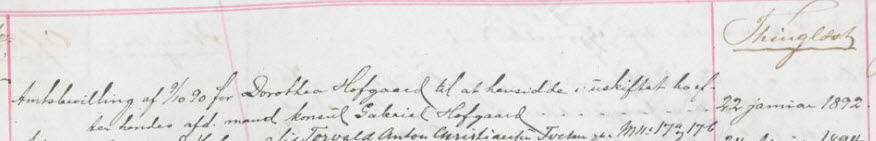 Thinglæst
Amtsbevilling af 9/10 90 for Dorothea Hofgaard til at hensidde i uskiftet bo ef-
ter hendes afd. mand konsul Gabriel Hofgaard 22 januar 1892.
Torvald Anton Christiansen Tveten M No 17a 17b